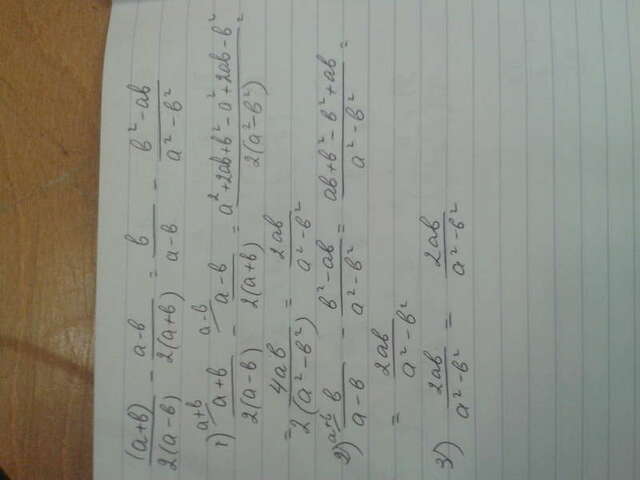 (a+b)/2(a-b) - a-b/2(a+b) = b/a-b - b²-ab/a²-b²
1) a+b a+b/2(a-b) - a-b a-b/2(a+b) = a²+2ab+b²-a²+2ab-b²/2(a²-b²) =
= 4ab/2(a²-b²) = 2ab/a²-b²
2) a+b b/a-b - b²-ab/a²-b² = ab+b²-b²+ab/a²-b² =
= 2ab/a²-b²
3) 2ab/a²-b² = 2ab/a²-b²